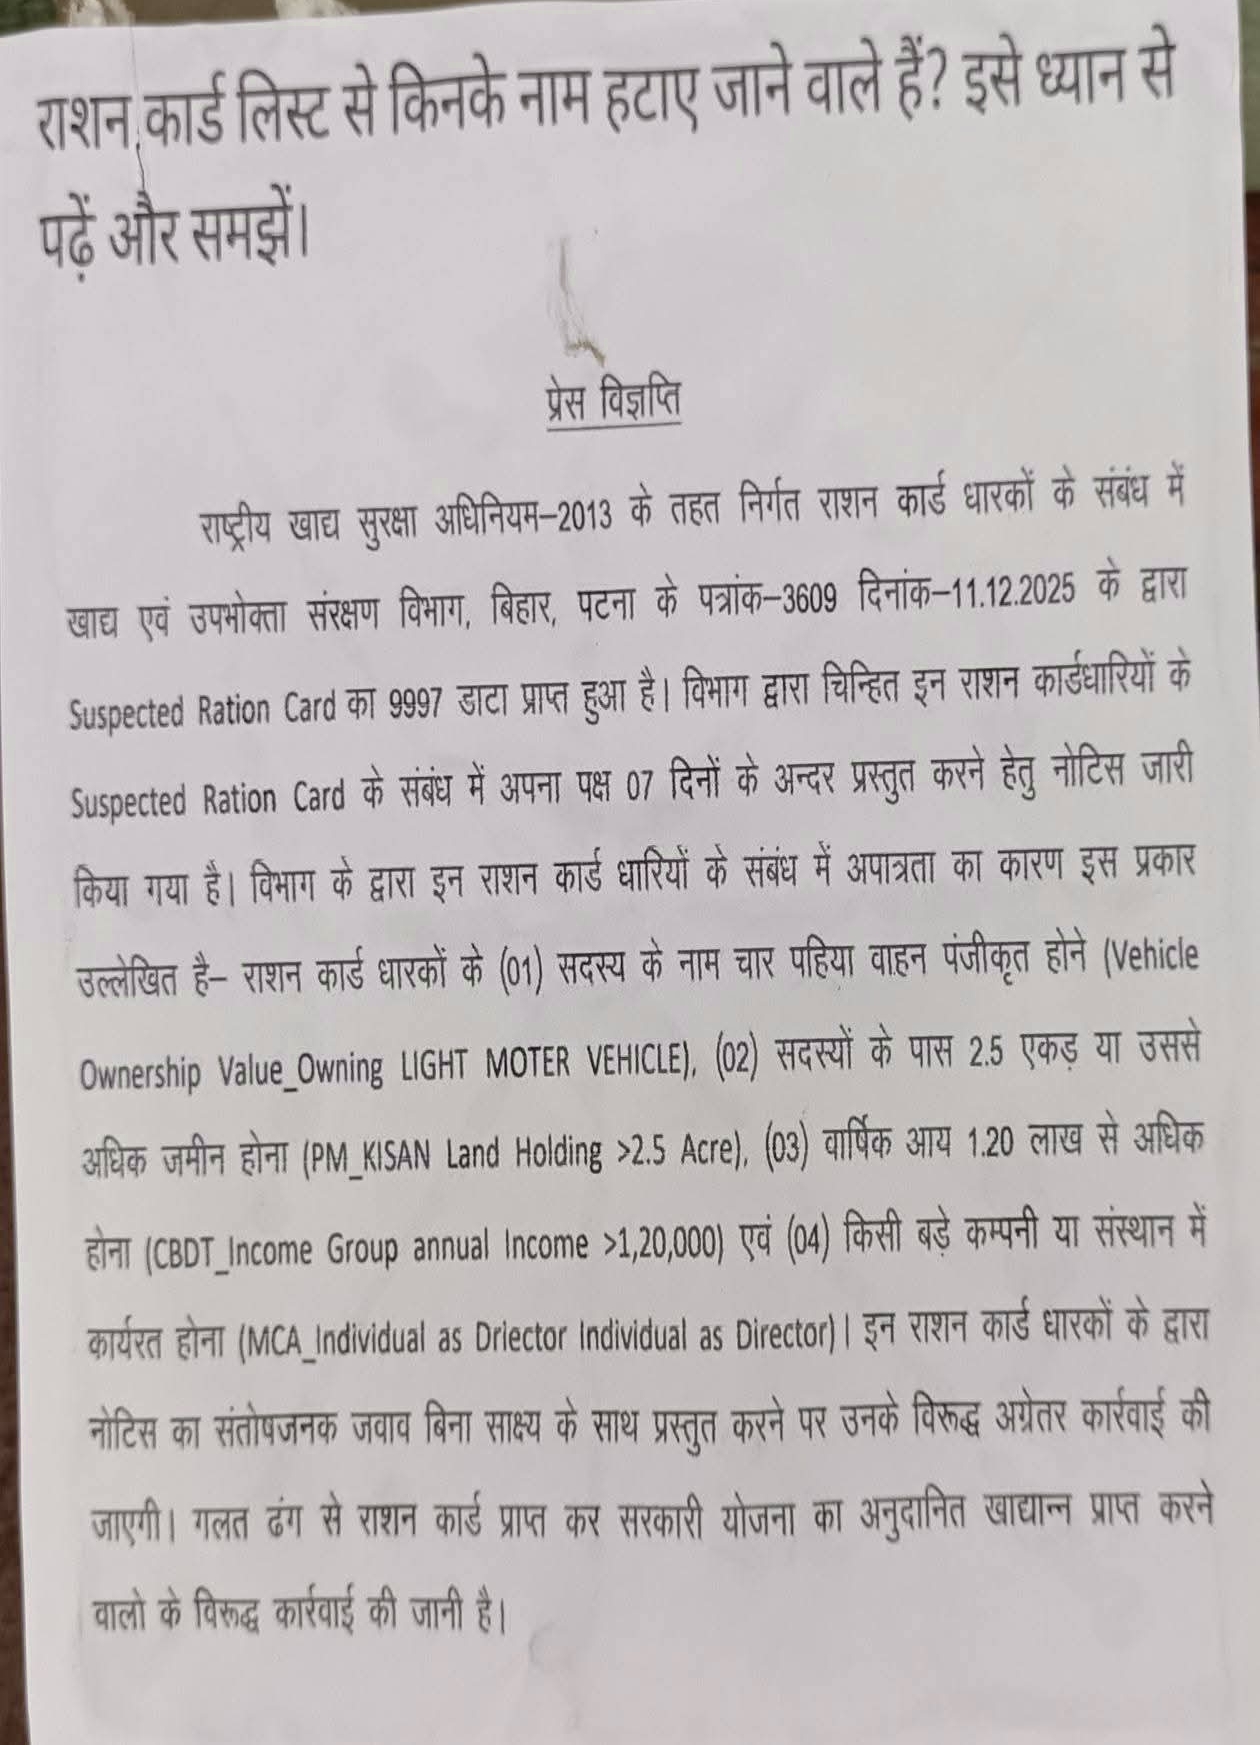 राशन कार्ड लिस्ट से किनके नाम हटाए जाने वाले हैं? इसे ध्यान से
पढ़ें और समझें।
प्रेस विज्ञप्ति
राष्ट्रीय खाद्य सुरक्षा अधिनियम–2013 के तहत निर्गत राशन कार्ड धारकों के संबंध में
खाद्य एवं उपभोक्ता संरक्षण विभाग, बिहार, पटना के पत्रांक–3609 दिनांक–11.12.2025 के द्वारा
Suspected Ration Card का 9997 डाटा प्राप्त हुआ है। विभाग द्वारा चिन्हित इन राशन कार्डधारियों के
Suspected Ration Card के संबंध में अपना पक्ष 07 दिनों के अन्दर प्रस्तुत करने हेतु नोटिस जारी
किया गया है। विभाग के द्वारा इन राशन कार्ड धारियों के संबंध में अपात्रता का कारण इस प्रकार
उल्लेखित है– राशन कार्ड धारकों के (01) सदस्य के नाम चार पहिया वाहन पंजीकृत होने (Vehicle
Ownership Value_Owning LIGHT MOTER VEHICLE), (02) सदस्यों के पास 2.5 एकड़ या उससे
अधिक जमीन होना (PM_KISAN Land Holding >2.5 Acre), (03) वार्षिक आय 1.20 लाख से अधिक
होना (CBDT_Income Group annual Income >1,20,000) एवं (04) किसी बड़े कम्पनी या संस्थान में
कार्यरत होना (MCA_Individual as Driector Individual as Director)। इन राशन कार्ड धारकों के द्वारा
नोटिस का संतोषजनक जवाव बिना साक्ष्य के साथ प्रस्तुत करने पर उनके विरूद्ध अग्रेतर कार्रवाई की
जाएगी। गलत ढंग से राशन कार्ड प्राप्त कर सरकारी योजना का अनुदानित खाद्यान्न प्राप्त करने
वालो के विरूद्ध कार्रवाई की जानी है।